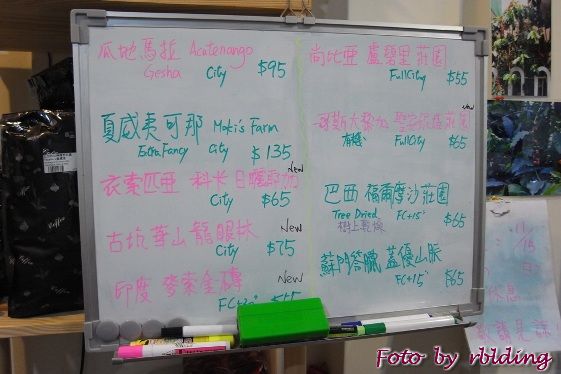 瓜地馬拉 Acatenango
Gesha City $95
夏威夷可那 Maki's Farm
Extra Fancy City $135
New
衣索匹亚 科卡 日曬原初
City $65
New
古坑華山 龍眼林
City $75
New
印度 麥索金磚
FC+
尚比亞 盧碧里莊園
FullCity $55
New
哥斯大黎加 莊園
有機 FullCity $65
巴西 福爾摩沙莊園
Tree Dried FC+15" $65
樹上乾燥
蘇門答臘 蓋優山脈
FC+15" $65
休息
Foto by rblding